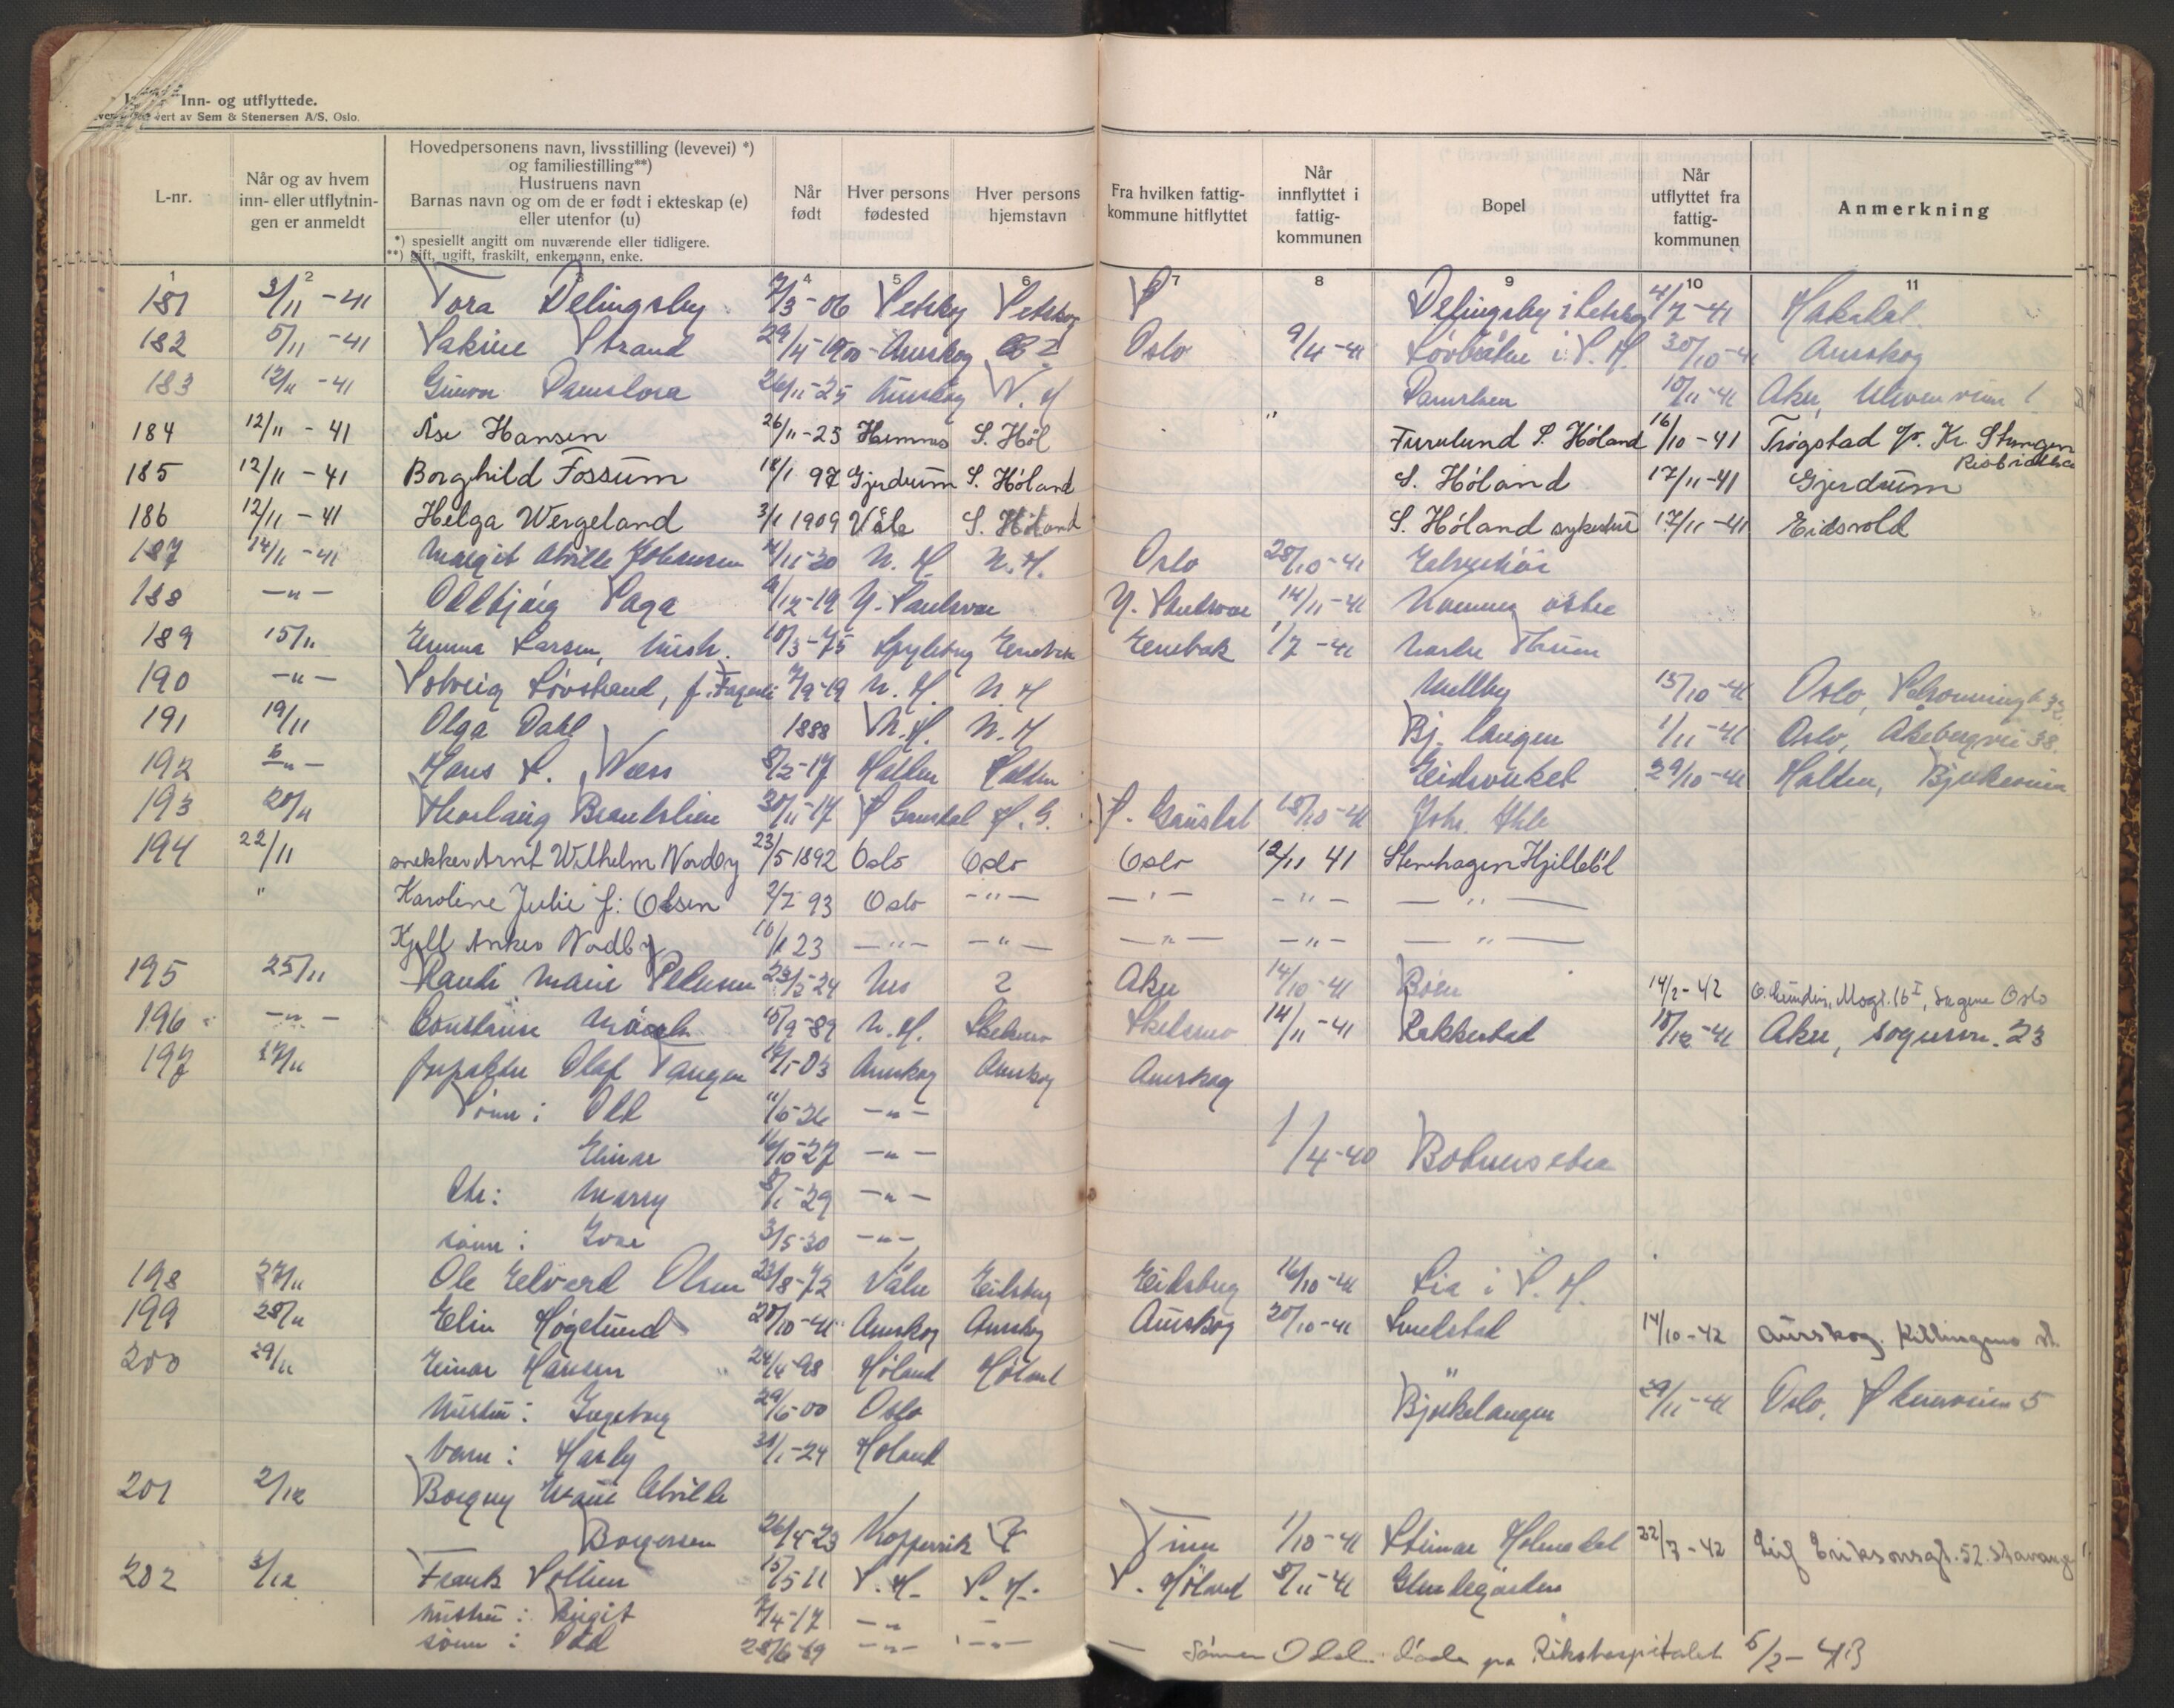 Inn- og utflyttede.
vert av Sem & Stenersen A/S. Oslo.
L-nr. Når og av hvem inn- eller utflytnin- gen er anmeldt Hovedpersonens navn, livsstilling (levevei) *) og familiestilling**) Hustruens navn Barnas navn og om de er født i ekteskap (e) eller utenfor (u) Når født Hver persons fødested Hver persons hjemstavn Fra hvilken fattig- kommune hitflyttet Når innflyttet i fattig- kommunen Bopel Når utflyttet fra fattig- kommunen Anmerkning
*) spesiellt angitt om nuværende eller tidligere.
**) gift, ugift, fraskilt, enkemann, enke.
1 2 3 4 5 6 7 8 9 10 11
181 3/11 - 41 Tora Delingsby 7/3 - 06 Setskog Setskog S Delingsby i Setskog 4/7 - 41 Hakadal
182 5/11 - 41 Sakine Strand 29/4 - 1900 - Aurskog Oslo 9/4 - 41 i S. H. 30/10 - 41 Aurskog
183 12/11 - 41 Gunvor 26/11 - 25 Aurskog N. H 10/11 - 41 Aker,
184 12/11 - 41 Åse Hansen 26/11 - 25 Hemnes S. Høl " Furulund S. Höland 16/10 - 41 Trøgstad
185 12/11 - 41 Borghild Fossum 18/1 97 Gjerdrum S. Höland S. Höland 17/11 - 41 Gjerdrum
186 12/11 - 41 Helga Wergeland 3/1 1909 Våle S. Höland S. Höland sykehus 17/11 - 41 Eidsvold
187 14/11 - 41 Margit Johansen 11 - 20 N. H. N. H. Oslo 28/10 - 41
188 - " - Oddbjørg Saga 9/12 - 19 Y. Sandsvær Y. Sandsvær 14/11 - 41 østre
189 15/11 Emma Larsen, hush. 10/3 - 75 Spydeberg Enebak Enebak 1/7 - 41 Thuen
190 - " - Solveig Løvstrand, f. 7/9 - 19 N. H. N. H Mellby 15/10 - 41 Oslo,
191 19/11 Olga Dahl 1888 N. H. N. H Bj. langen 1/11 - 41 Oslo, Åkebergvei 38.
192 - " - Hans S. Næss 8/2 - 17 Halden Halden Eidsverket 29/10 - 41 Halden,
193 20/11 30/11 - 17 18/10 - 41
194 22/11 snekker Arnt Wilhelm Nordby 23/5 1892 Oslo Oslo Oslo 12/11 41 Stenhagen Hjellebøl
" Karoline Julie f: Olsen 2/7 93 Oslo - " - - " - - " - - " -
Kjell Anker Nordby 10/1 23 - " - - " - - " - - " - - " -
195 25/11 Randi Marie Pedersen 23/2 - 24 Nes ? Aker 14/10 - 41 Böen 14/2 - 42 Sagene Oslo
196 - " - 15/9 - 89 N. H. Skedsmo Skedsmo 14/11 - 41 Rakkestad 18/12 - 41 Aker, Sognsvn. 23
197 27/11 Olaf Tangen 14/1 - 03 Aurskog Aurskog Aurskog
Sønn: Odd 11/5 - 26 - " -
Einar 16/10 - 27 - " - 1/4 - 40
Dtr: Marry 8/1 - 29 - " -
sønn: Ivar 3/5 - 30 - " -
198 27/11 Ole Edvard Olsen 23/8 - 72 Våler Eidsberg Eidsberg 16/10 - 41 Lia i S. H.
199 28/11 Elin Høgelund 20/10 - 41 Aurskog Aurskog Aurskog 20/10 - 41 Smedstad 14/10 - 42 Aurskog. Killingmo st.
200 29/11 Einar Hansen 24/4 - 98 Høland Høland
Hustru: Ingeborg 29/6 - 00 Oslo Bjørkelangen 29/11 - 41 Oslo,
barn: Harly 31/1 - 24 Høland
201 2/12 Borgny Marie Alvilde
Borgersen 26/4 - 23 Kopperrik ? Tinn 1/10 - 41 Holmedal 22/3 - 42 Leif Eriksonsgt. 52. Stavanger
202 3/12 Frank Sollien 15/5 11 S. H. S. H. S. Høland 8/11 - 41
Hustru: Birgit 7/4 - 17 - " - -
sønn: Odd 28/6 - 69 - " - - " - — Sønnen Odd døde på Rikshospitalet 5/2 - 43